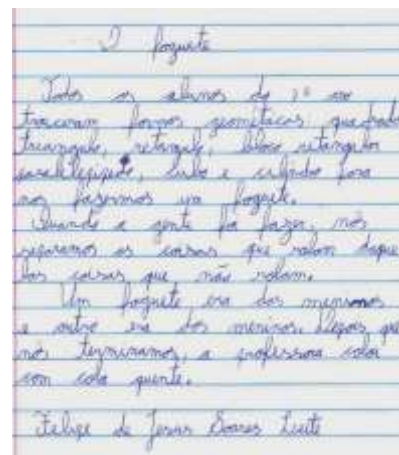 O foguete
Todos os alunos do 1º ano
trouceram formas geométricas, quadrado
triangulo, retangulo, bloco retangular
paralelepipedo, cubo e cilindro para
nos fazermos um foguete.
Quando a gente foi fazer, nós
separamos as coisas que rolam daque
las coisas que não rolam.
Um foguete era das meninas
e outro era dos meninos. Depois que
nós terminamos, a professora colou
com cola quente.
Felipe de Jesus Soares Leite